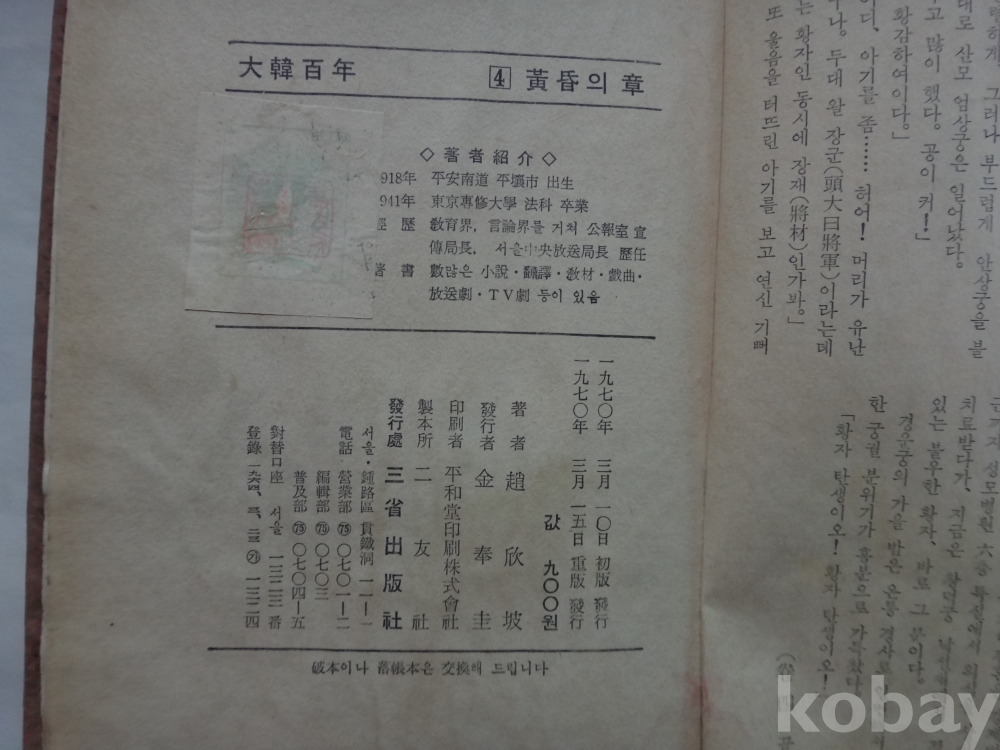 大韓百年 4 黃昏의 章
◇ 著者紹介 ◇
918年 平安南道 平壤市 出生
941年 東京專修大學 法科 卒業
歷 敎育界, 言論界를 거쳐 公報室 宣
傳局長, 서울中央放送局長 歷任
著書 數많은 小說·飜譯·敎材·戱曲·
放送劇·TV劇 등이 있음
一九七〇年 三月 一〇日 初版 發行
一九七〇年 三月 一五日 重版 發行
값 九〇〇원
著者 趙欣坡
發行者 金奉圭
印刷者 平和堂印刷株式會社
製本所 二友社
發行處 三省出版社
서울·鍾路區 貫鐵洞 一一一一
電話 營業部 ㊆ 〇七〇一一二
編輯部 〇七〇三
普及部 〇七〇四一五
對替口座 서울 一三三二二番
登錄 一三二四
破本이나 落帳本은 交換해 드립니다
하게, 그러나 부드럽게 안상궁을 불
대로 산모 엄상궁은 일어났다.
고 많이 했다. 공이 커!」
황감하여이다.」
디, 아기를 좀…… 허어! 머리가 유난
나. 두대 왈 장군(頭大曰將軍)이라는데
는 황자인 동시에 장재(將材)인가봐.」
또 울음을 터뜨린 아기를 보고 연신 기뻐
치료받다가, 지금은
있는 불우한 황자, 바로 그 분이다.
경운궁의 가을 밤은 온통 경사로
한 궁궐 분위기가 흥분으로 가득찼다.
「황자 탄생이오! 황자 탄생이오!
kobay